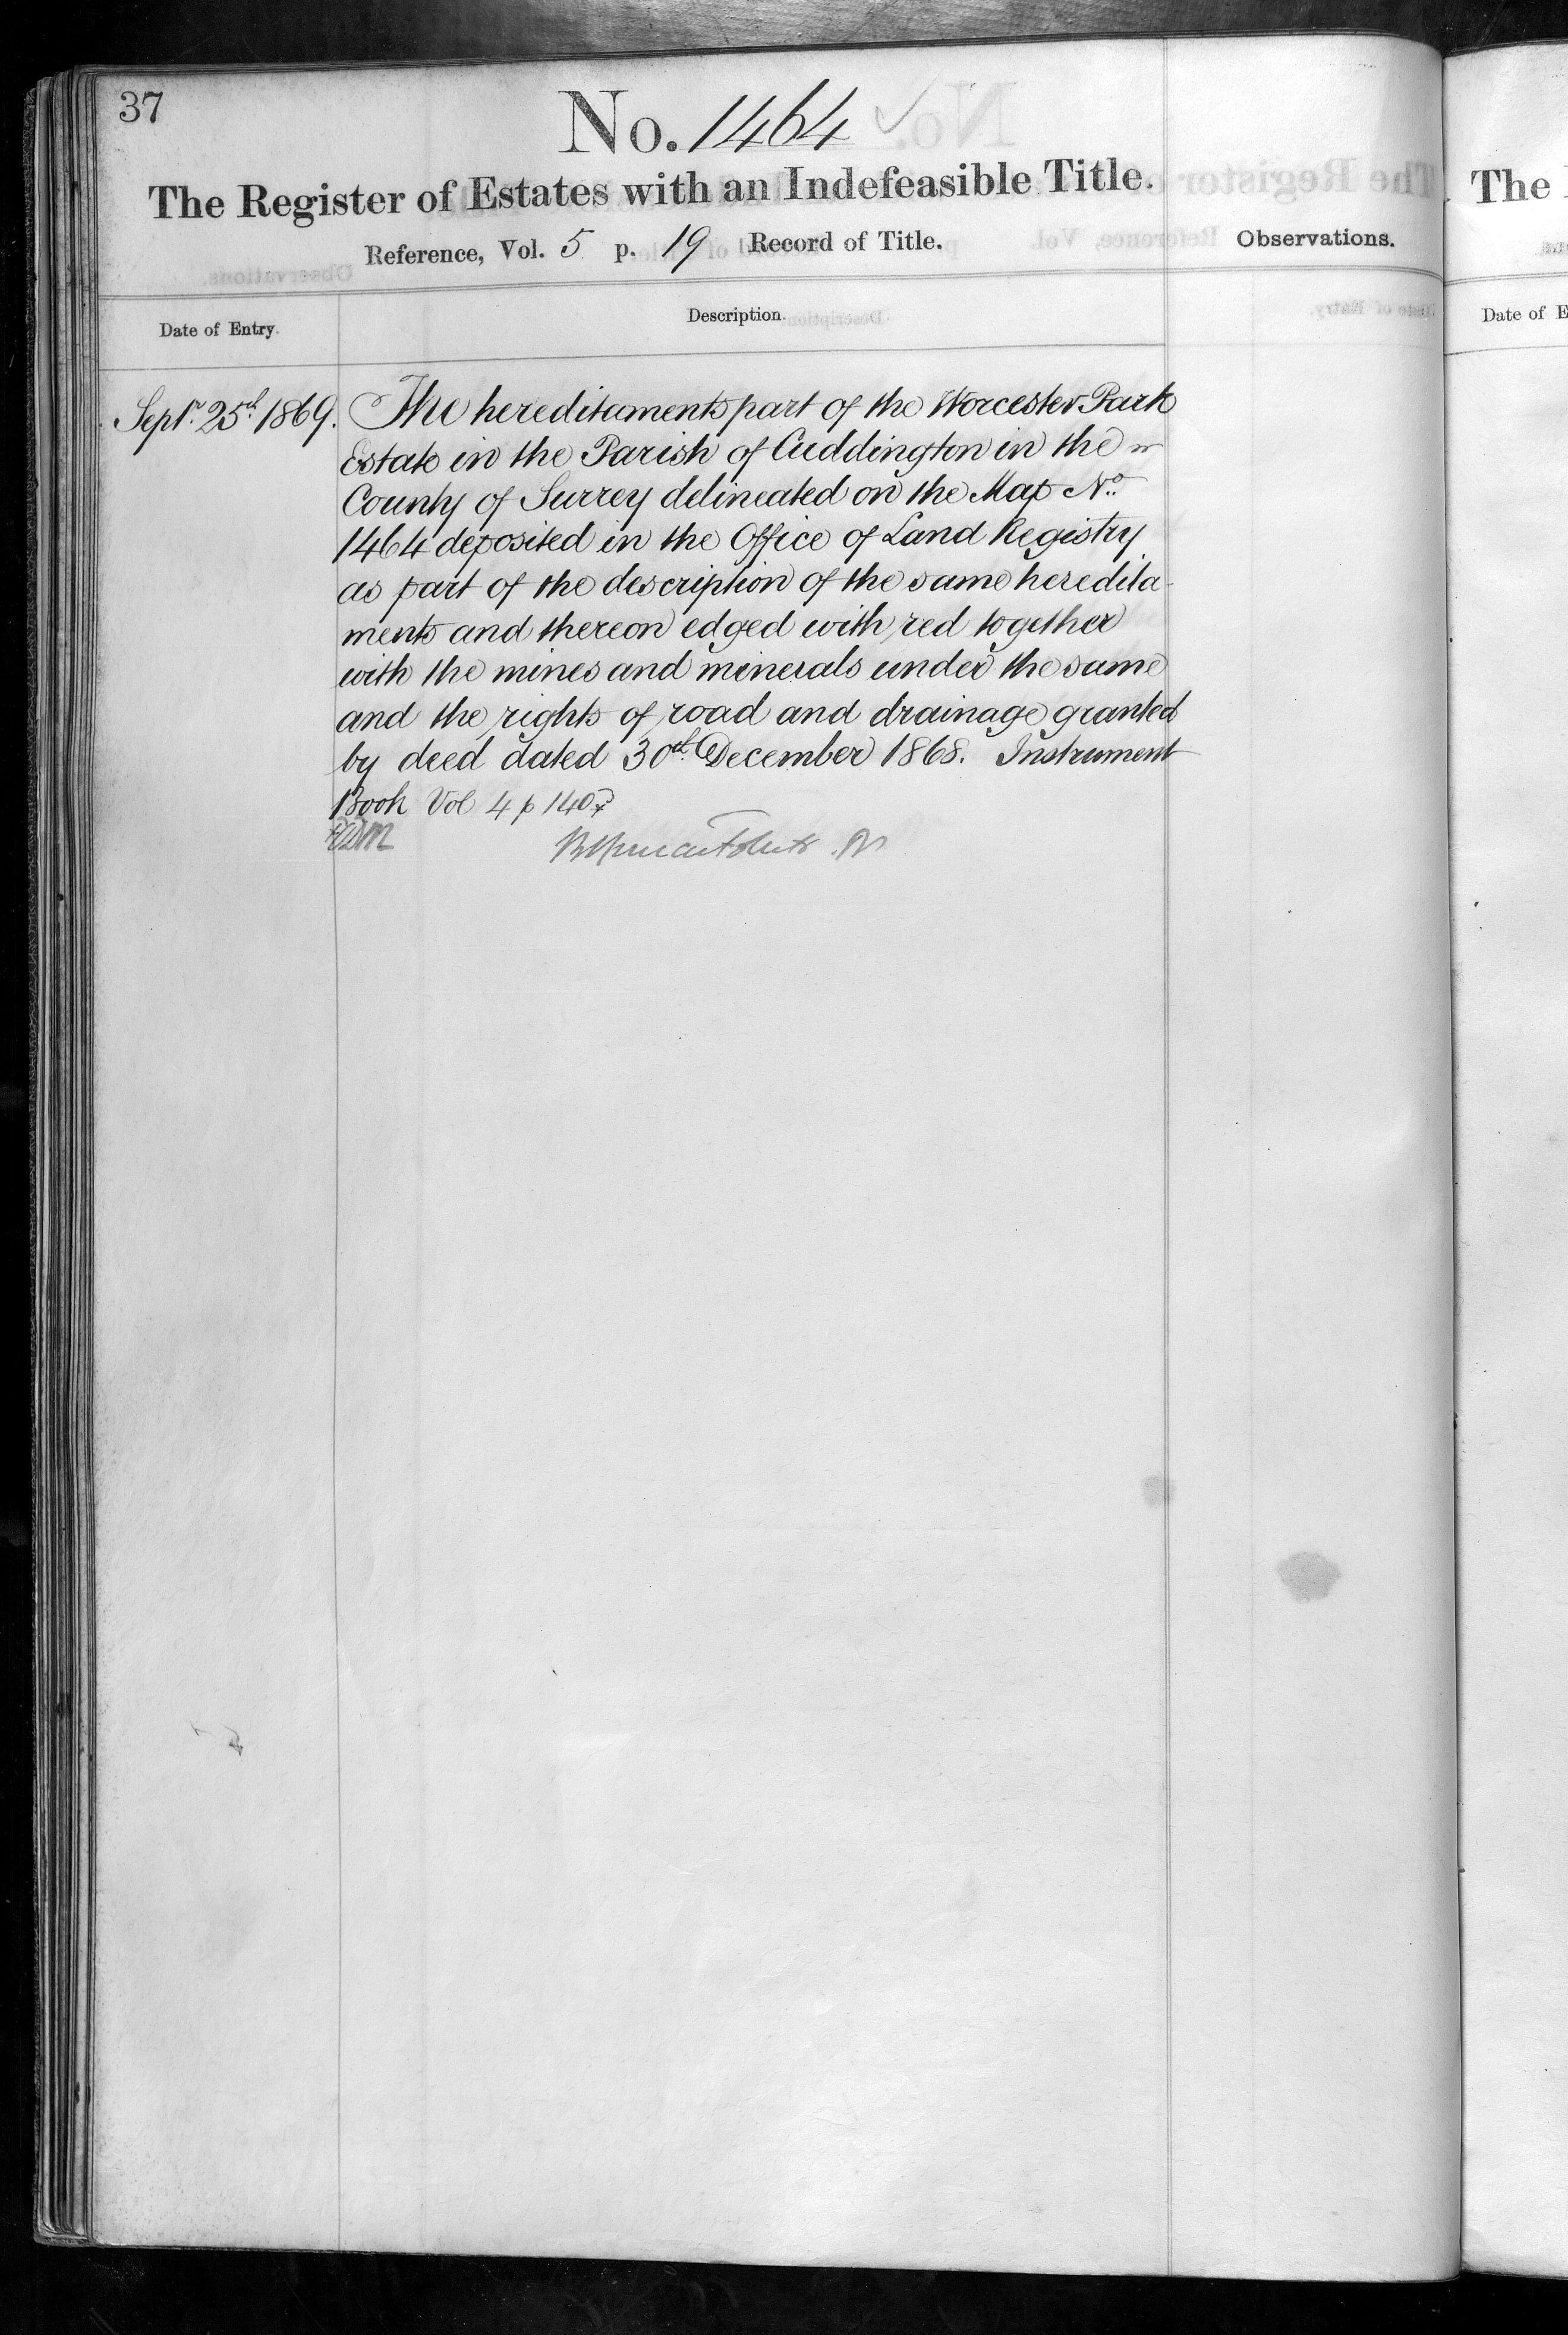 37
No. 1464
The Register of Estates with an Indefeasible Title.
Reference, Vol. 5 p. 19 Record of Title.
Observations.
Date of Entry.
Description.
Septr. 25th 1869.
The hereditaments part of the Worcester Park
Estate in the Parish of Cuddington in the
County of Surrey delineated on the Map No.
1464 deposited in the Office of Land Registry
as part of the description of the same heredita-
ments and thereon edged with red together
with the mines and minerals under the same
and the rights of road and drainage granted
by deed dated 30th December 1868. Instrument
Book Vol 4 p 140
The
Date of E